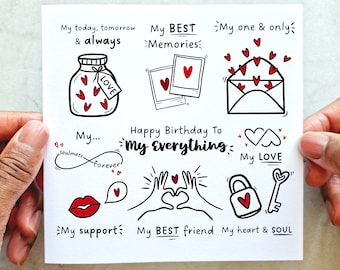 My today, tomorrow
& always
LOVE
My BEST
Memories
My one & only
My...
soulmate
Forever
Happy Birthday To
My Everything
My LOVE
My support
My BEST friend
My heart & SOUL